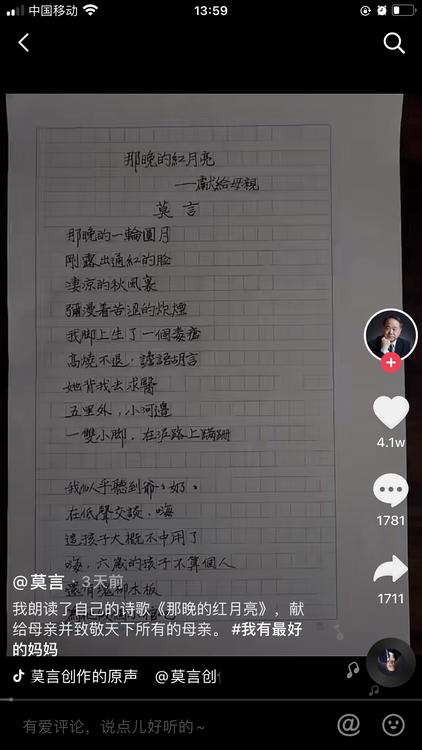 中国移动
13:59
那晚的紅月亮
——獻給母親
莫言
那晚的一輪圓月
剛露出通紅的臉
淒涼的秋風裏
彌漫着苦澀的炊煙
我脚上生了一個毒瘡
高燒不退，譫語胡言
她背我去求醫
五里外，小河邊
一雙小脚，在泥路上蹒跚
我似乎聽到爺爺奶奶
在低聲交談，嗨
這孩子大概不中用了
嗨，六歲的孩子不算個人
還有幾塊木板
4.1w
1781
1711
@莫言 · 3天前
我朗读了自己的诗歌《那晚的红月亮》，献
给母亲并致敬天下所有的母亲。 #我有最好
的妈妈
莫言创作的原声 @莫言创
有爱评论，说点儿好听的~